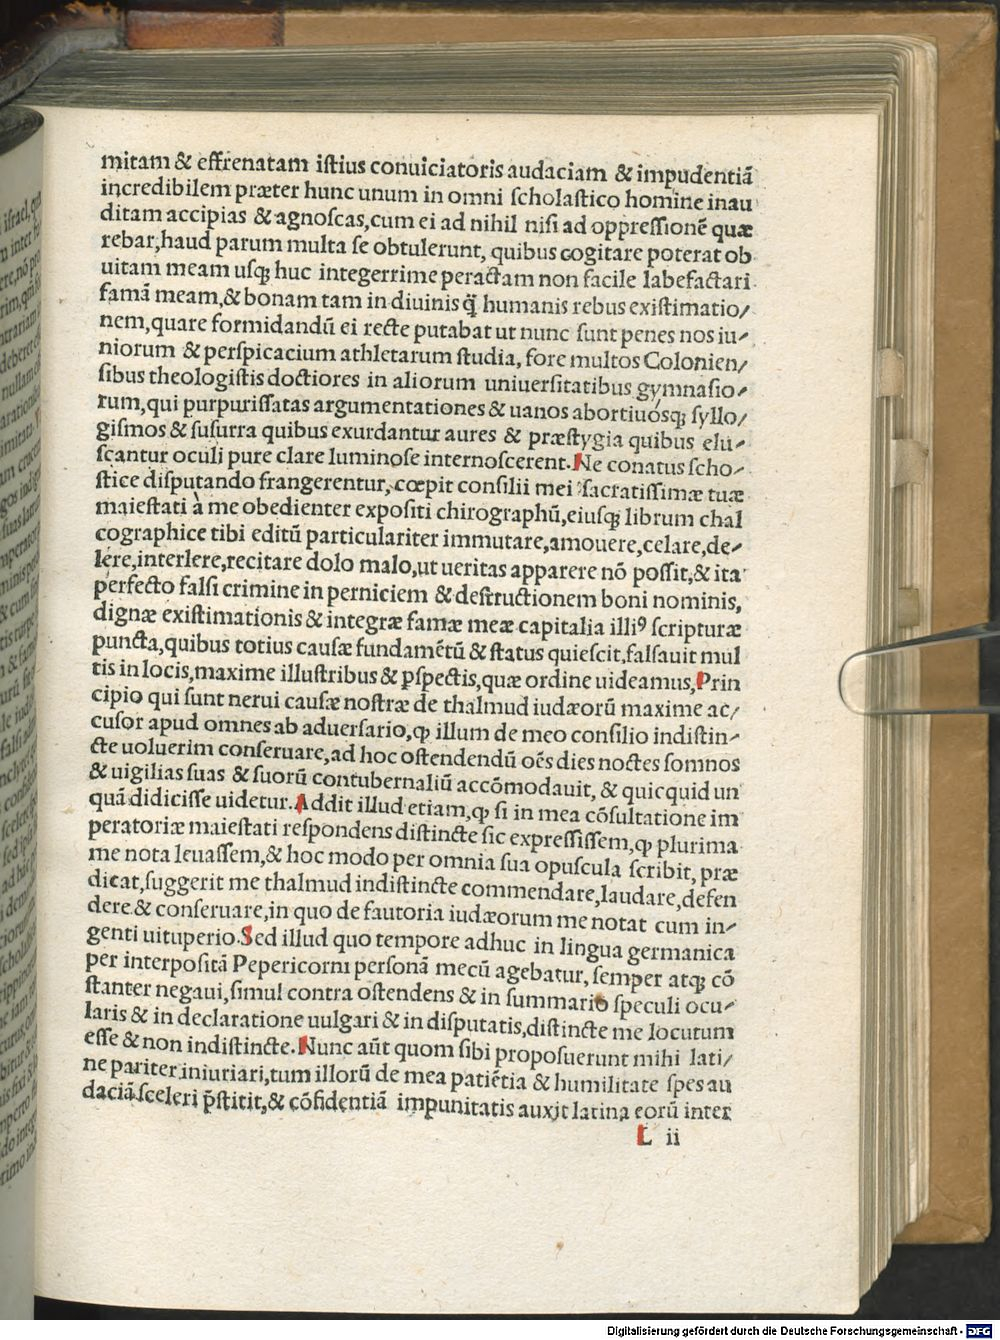 mitam & effrenatam iſtius conuiciatoris audaciam & impudentiā
incredibilem præter hunc unum in omni ſcholaſtico homine inau
ditam accipias & agnoſcas,cum ei ad nihil niſi ad oppreſſionē quæ
rebar,haud parum multa ſe obtulerunt, quibus cogitare poterat ob
uitam meam uſqꝫ huc integerrime peractam non facile labefactari
famā meam,& bonam tam in diuinis q̄ humanis rebus exiſtimatio/
nem,quare formidandū ei recte putabat ut nunc ſunt penes nos iu/
niorum & perſpicacium athletarum ſtudia, fore multos Colonien/
ſibus theologiſtis doctiores in aliorum uniuerſitatibus gymnaſio/
rum,qui purpuriſſatas argumentationes & uanos abortiuoſqꝫ ſyllo/
giſmos & ſuſurra quibus exurdantur aures & præſtygia quibus elu/
ſcantur oculi pure clare luminoſe internoſcerent.Ne conatus ſcho/
ſtice diſputando frangerentur,cœpit conſilii mei ſacratiſſimæ tuæ
maieſtati à me obedienter expoſiti chirographū,eiuſqꝫ librum chal
cographice tibi editū particulariter immutare,amouere,celare,de/
lere,interlere,recitare dolo malo,ut ueritas apparere nō poſſit,& ita
perfecto falſi crimine in perniciem & deſtructionem boni nominis,
dignæ exiſtimationis & integræ famæ meæ capitalia illiꝰ ſcripturæ
puncta,quibus totius cauſæ fundamētū & ſtatus quieſcit,falſauit mul
tis in locis,maxime illuſtribus & ꝑſpectis,quæ ordine uideamus,Prin
cipio qui ſunt nerui cauſæ noſtræ de thalmud iudæorū maxime ac/
cuſor apud omnes ab aduerſario,ꝙ illum de meo conſilio indiſtin/
cte uoluerim conſeruare,ad hoc oſtendendū oēs dies noctes ſomnos
& uigilias ſuas & ſuorū contubernaliū accōmodauit, & quicquid un
quā didiciſſe uidetur.Addit illud etiam,ꝙ ſi in mea cōſultatione im
peratoriæ maieſtati reſpondens diſtincte ſic expreſſiſſem,ꝙ plurima
me nota leuaſſem,& hoc modo per omnia ſua opuſcula ſcribit, præ
dicat,ſuggerit me thalmud indiſtincte commendare,laudare,defen
dere & conſeruare,in quo de fautoria iudæorum me notat cum in/
genti uituperio.Sed illud quo tempore adhuc in lingua germanica
per interpoſitā Pepericorni perſonā mecū agebatur, ſemper atqꝫ cō
ſtanter negaui,ſimul contra oſtendens & in ſummario ſpeculi ocu/
laris & in declaratione uulgari & in diſputatis,diſtincte me locutum
eſſe & non indiſtincte.Nunc aūt quom ſibi propoſuerunt mihi lati/
ne pariter iniuriari,tum illorū de mea patiētia & humilitate ſpes au
daciā ſceleri p̄ſtitit,& cōfidentiā impunitatis auxit latina eorū inter
L ii
Digitalisierung gefördert durch die Deutsche Forschungsgemeinschaft - DFG